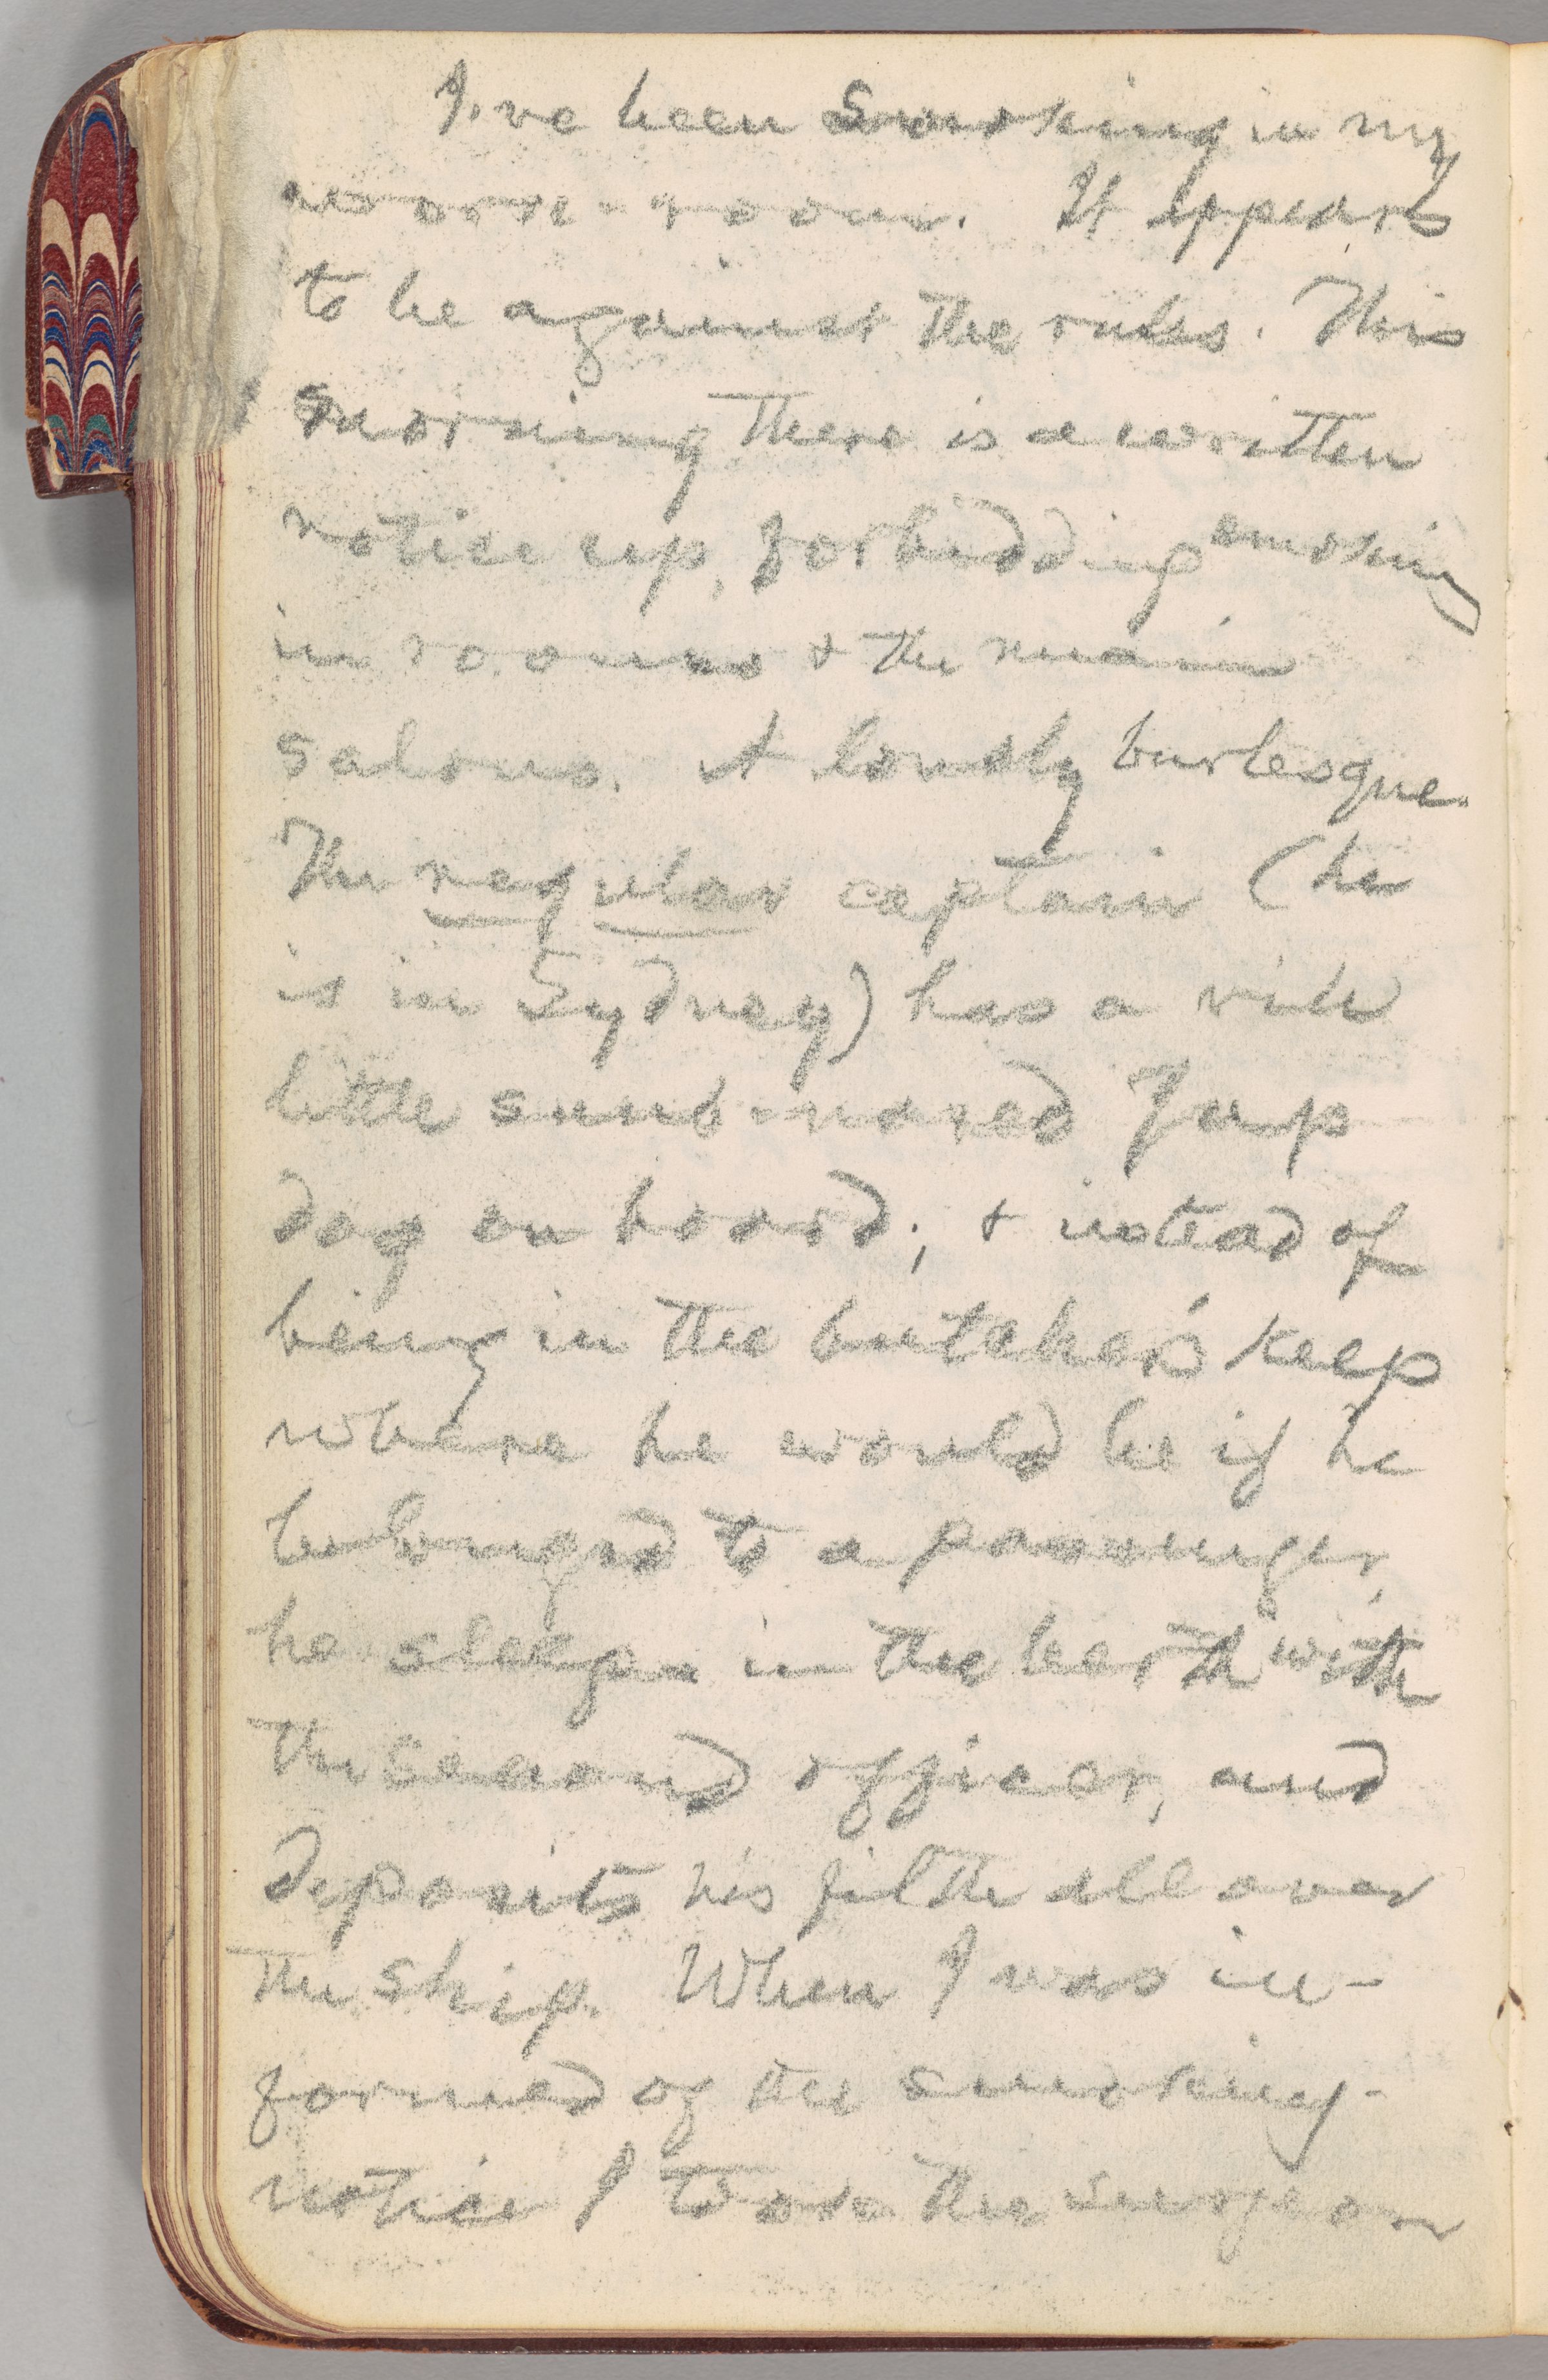 I've been smoking in my
work-room. It appears
to be against the rules. This
morning there is a written
notice up, forbidding smoking
in rooms & the main
saloons. A lovely burlesque.
The regular captain (he
is in Sydney) has a vile
little snub-nosed Jap
dog on board; & instead of
being in the butcher's keep
where he would be if he
belonged to a passenger,
he sleeps in the berth with
the second officer, and
deposits his filth all over
the ship. When I was in-
formed of the smoking-
notice I took the surgeon